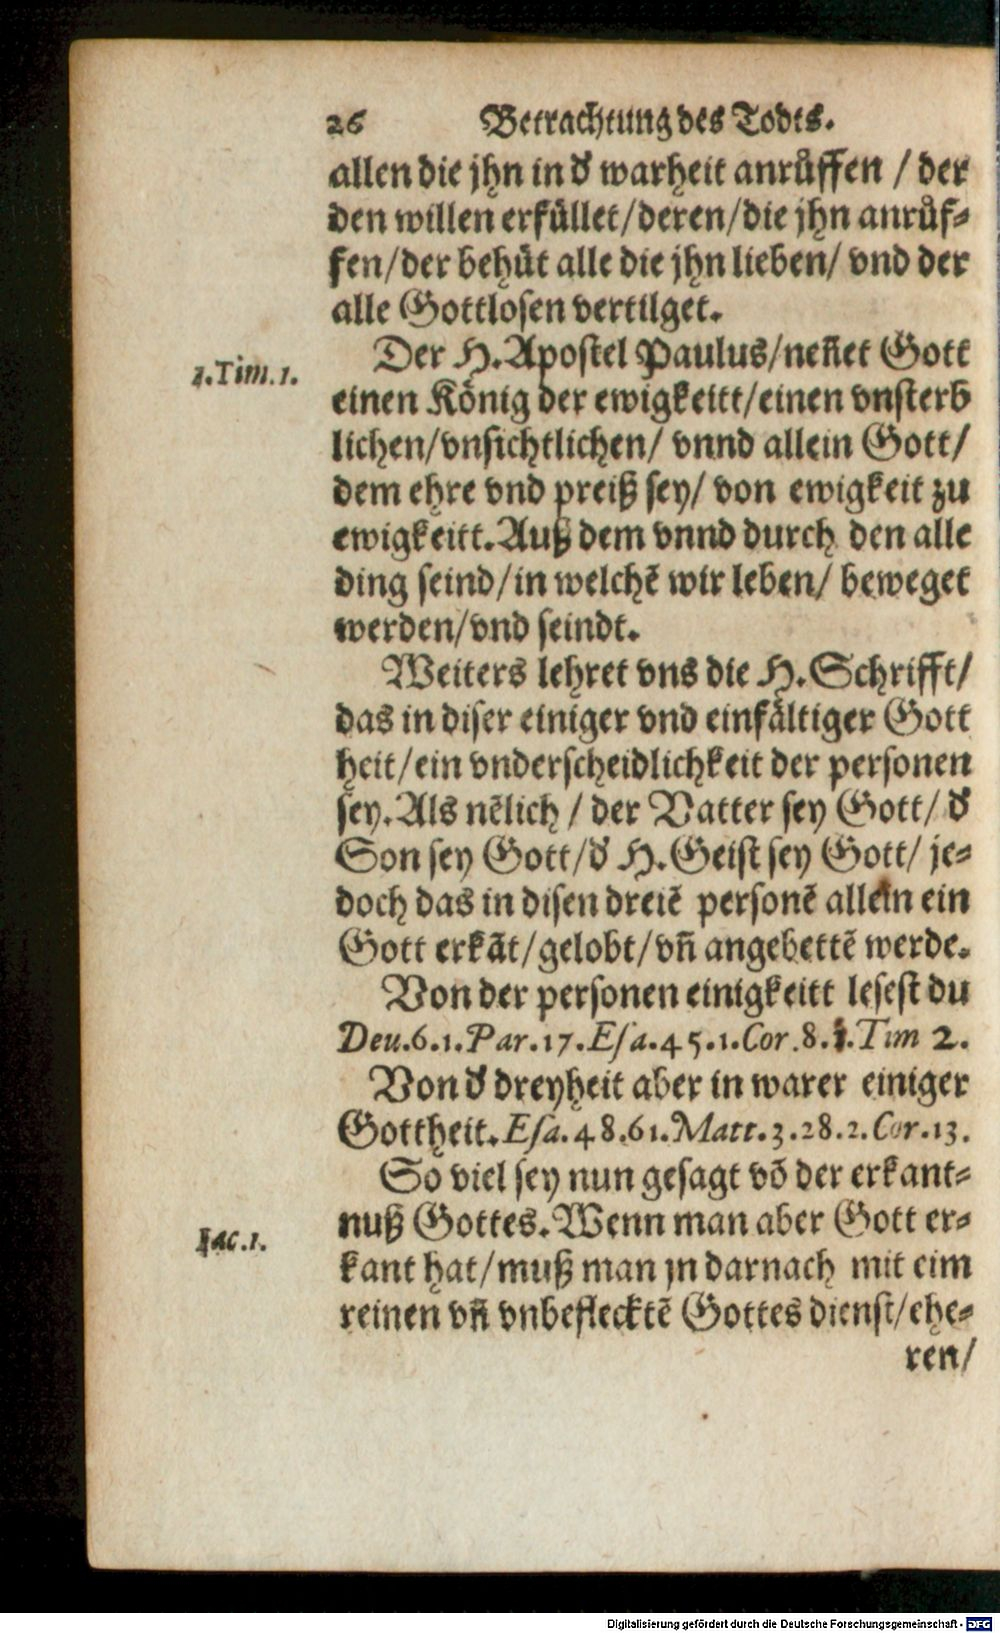 26 Betrachtung des Todts.
allen die jhn in d' warheit anrůffen / der
den willen erfüllet/deren/die jhn anrůf-
fen/der behüt alle die jhn lieben/ vnd der
alle Gottlosen vertilget.
1.Tim.1.
Der H. Apostel Paulus/neñet Gott
einen König der ewigkeitt/einen vnsterb
lichen/vnsichtlichen/ vnnd allein Gott/
dem ehre vnd preiß sey/ von ewigkeit zu
ewigkeitt. Auß dem vnnd durch den alle
ding seind/in welchē wir leben/ beweget
werden/vnd seindt.
Weiters lehret vns die H. Schrifft/
das in diser einiger vnd einfältiger Gott
heit/ein vnderscheidlichkeit der personen
sey. Als nēlich / der Vatter sey Gott/ d'
Son sey Gott/d' H. Geist sey Gott/ je-
doch das in disen dreiē personē allein ein
Gott erkāt/gelobt/vñ angebettē werde.
Von der personen einigkeitt lesest du
Deu.6.1.Par.17.Esa.45.1.Cor.8.1.Tim 2.
Von d' dreyheit aber in warer einiger
Gottheit. Esa.48.61.Matt.3.28.2.Cor.13.
So viel sey nun gesagt vō der erkant-
nuß Gottes. Wenn man aber Gott er-
Jac.1.
kant hat/muß man jn darnach mit eim
reinen vñ vnbeflecktē Gottes dienst/ehe-
ren/
Digitalisierung gefördert durch die Deutsche Forschungsgemeinschaft - DFG